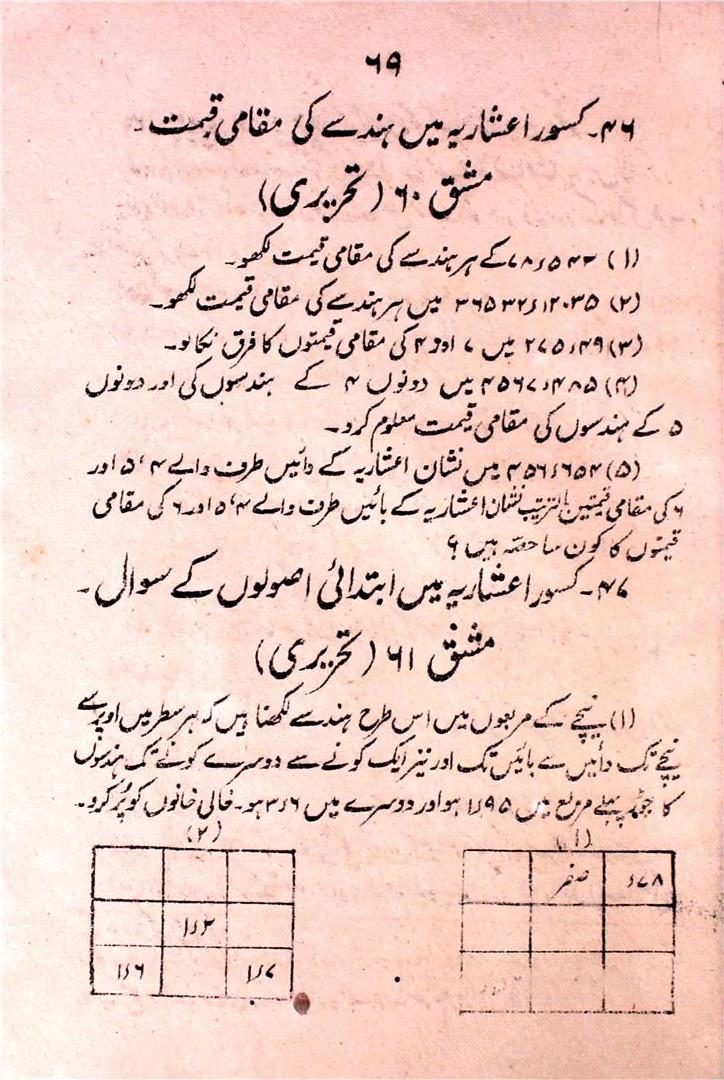 ۶۹
۴۶۔ کسور اعشاریہ میں ہندسے کی مقامی قیمت۔
مشق ۶۰ (تحریری)
(۱) ۷۸ء۵۴۲ کے ہر ہندسے کی مقامی قیمت لکھو۔
(۲) ۳۶۵۳۲ء۱۲۰۳۵ میں ہر ہندسے کی مقامی قیمت لکھو۔
(۳) ۲۷۵ء۴۹ میں ۷ اور ۴ کی مقامی قیمتوں کا فرق نکالو۔
(۴) ۴۵۶۷ء۴۸۵ میں دونوں ۴ کے ہندسوں کی اور دونوں
۵ کے ہندسوں کی مقامی قیمت معلوم کرو۔
(۵) ۴۵۶ء۶۵۴ میں نشان اعشاریہ کے دائیں طرف والے ۴، ۵ اور
۶ کی مقامی قیمتیں بالترتیب نشان اعشاریہ کے بائیں طرف والے ۴، ۵ اور ۶ کی مقامی
قیمتوں کا کون سا حصہ ہیں ؟
۴۷۔ کسور اعشاریہ میں ابتدائی اصولوں کے سوال۔
مشق ۶۱ (تحریری)
(۱) نیچے کے مربعوں میں اس طرح ہندسے لکھنا ہیں کہ ہر سطر میں اوپر سے
نیچے تک دائیں سے بائیں تک اور نیز ایک کونے سے دوسرے کونے تک ہندسوں
کا جوڑ پہلے مربع میں ۱ء۹۵ ہو اور دوسرے میں ۳ء۶ ہو۔ خالی خانوں کو پُر کرو۔
(۱) (۲)
ء۷۸ صفر
۱ء۲
۱ء۷ ۱ء۶